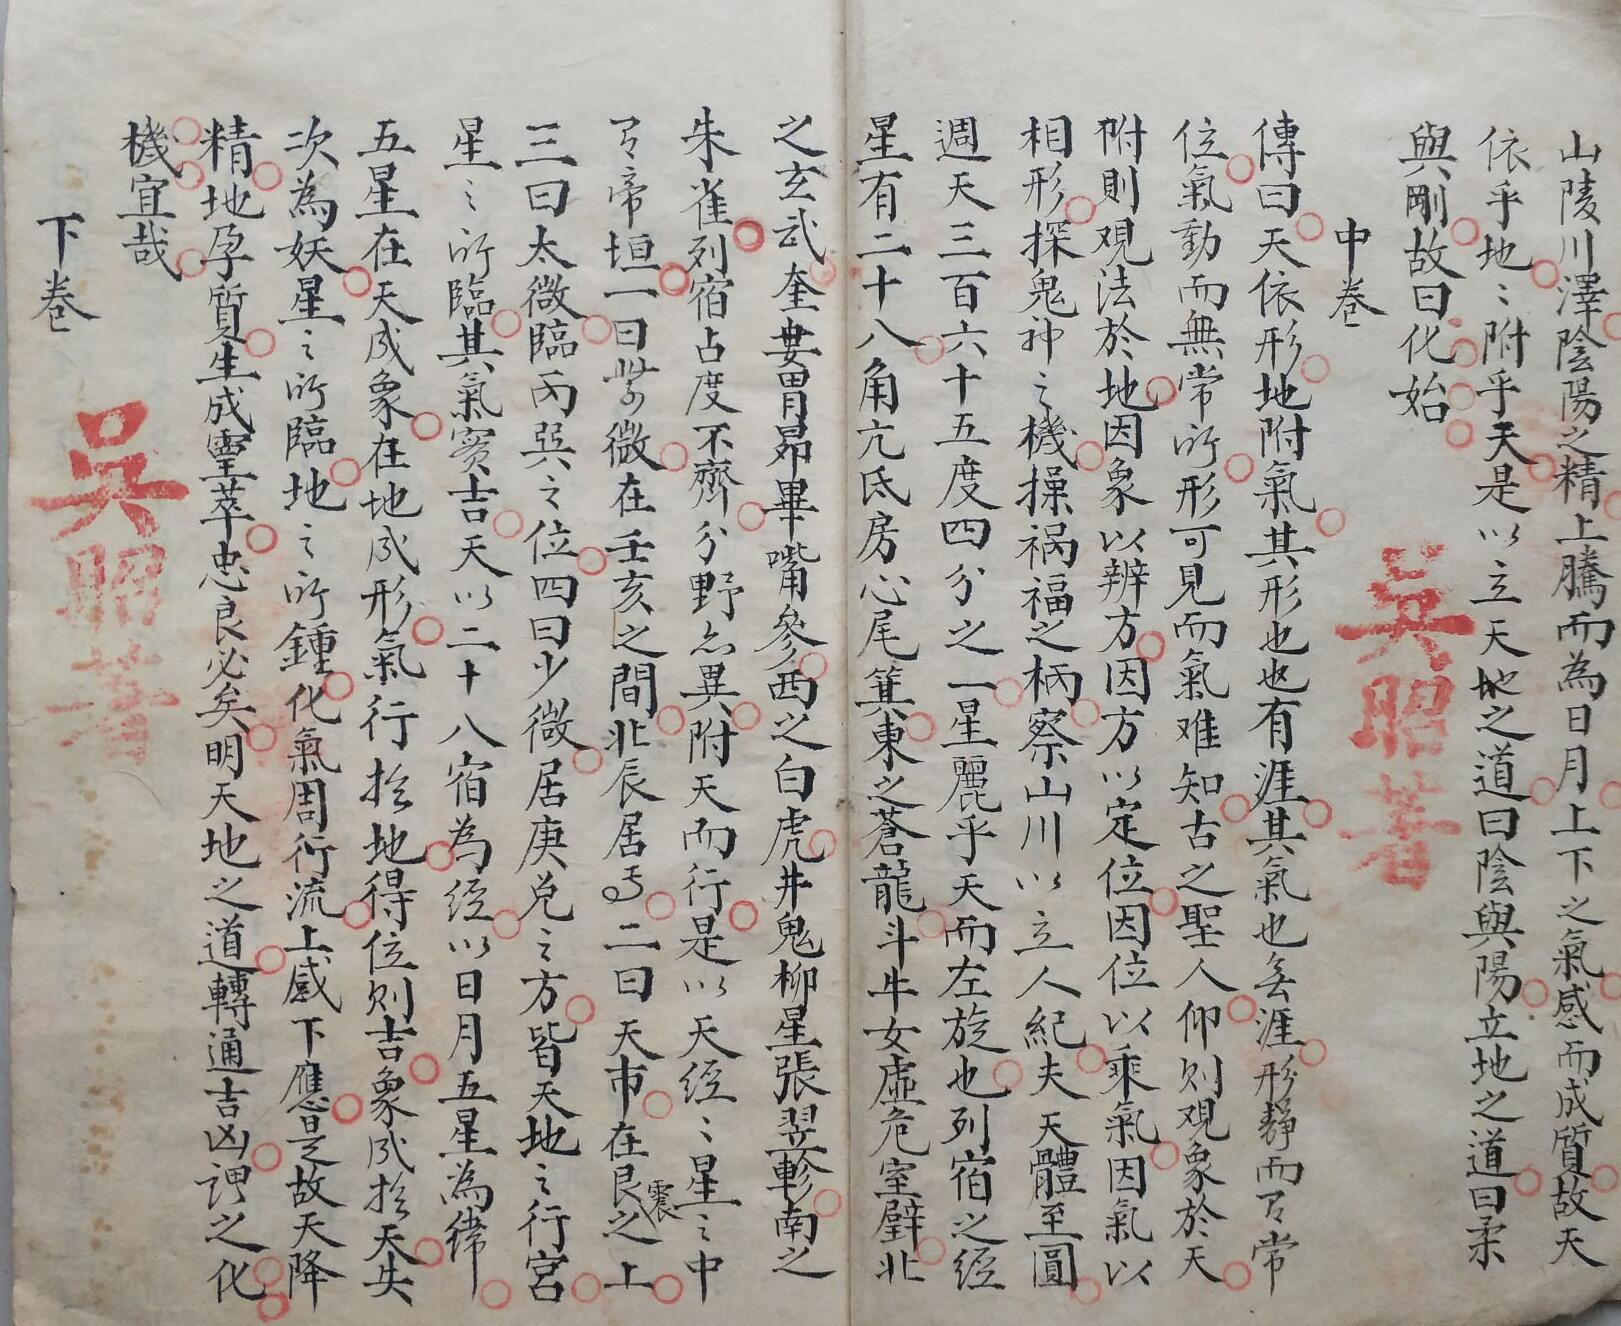 山陵川澤陰陽之精上騰而為日月上下之氣感而成質故天
依乎地〻附乎天是以立天地之道曰陰與陽立地之道曰柔
與剛故曰化始
中卷
吳昭著
傳曰天依形地附氣其形也也有涯其氣也無涯形靜而有常
位氣動而無常所形可見而氣难知古之聖人仰則观象於天
附則观法於地因象以辨方因方以定位因位以乘氣因氣以
相形探鬼神之機操禍福之柄察山川以立人紀夫天體至圓
週天三百六十五度四分之一星麗乎天而左旋也列宿之經
星有二十八角亢氐房心尾箕東之蒼龍斗牛女虛危室壁北
之玄武奎婁胃昴畢嘴參西之白虎井鬼柳星張翌軫南之
朱雀列宿占度不齊分野亦異附天而行是以天經〻星〻中
有帝垣一曰紫微在壬亥之間北辰居焉二曰天市在艮震之上
三曰太微臨丙巽之位四曰少微居庚兌之方皆天地之行宮
星之所臨其氣實吉天以二十八宿為經以日月五星為緯
五星在天成象在地成形氣行於地得位則吉象成於天失
次為妖星之所臨地之所鍾化氣周行流上感下應是故天降
精地孕質生成靈萃忠良必矣明天地之道轉通吉凶謂之化
機宜哉
下卷
吳昭著